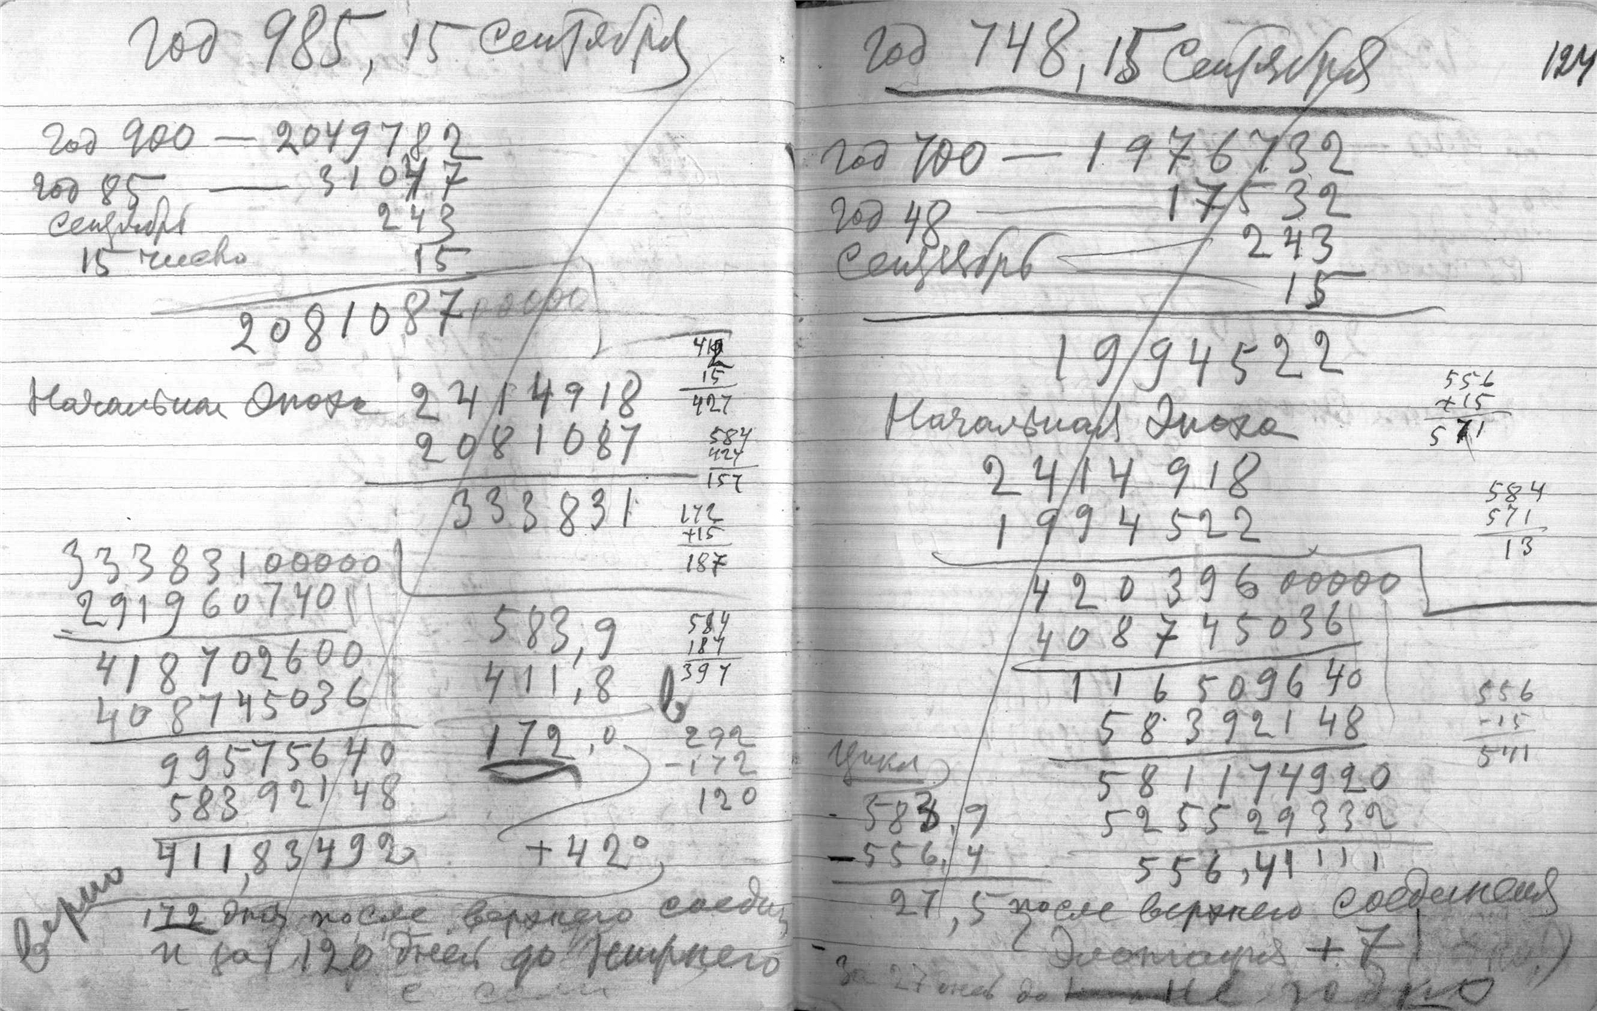 год 985, 15 Сентября
год 900 — 2049782
год 85 — 31047
сентябрь 243
15 число 15
2081087 00000
Начальная Эпоха 2414918
2081087
333831
412
15
427
584
427
157
172
+15
187
584
187
397
292
-172
120
33383100000
291960740
418702600
408745036
99575640
58392148
411,83492
583,9
411,8
172,0
+42°
верно
172 дня после верхнего соедин
и за 120 дней до нижнего
год 748, 15 Сентября
124
год 700 — 1976732
год 48 — 17532
Сентябрь 243
15
1994522
Начальная Эпоха
2414918
1994522
42039600000
408745036
116509640
58392148
581174920
525529332
556,41111
556
+15
571
584
571
13
556
-15
541
Цикл
- 583,9
- 556,4
27,5 после верхнего соединения
Элонгация + 7
за 27 дней до не годно